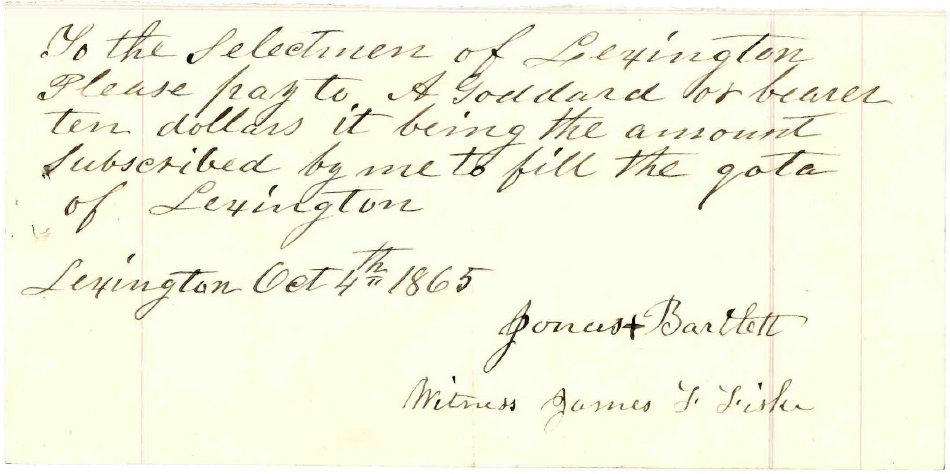 To the Selectmen of Lexington
Please pay to A Goddard or bearer
ten dollars it being the amount
Subscribed by me to fill the qota
of Lexington
Lexington Oct 4th 1865
Jonas + Bartlett
Witness James F Fiske